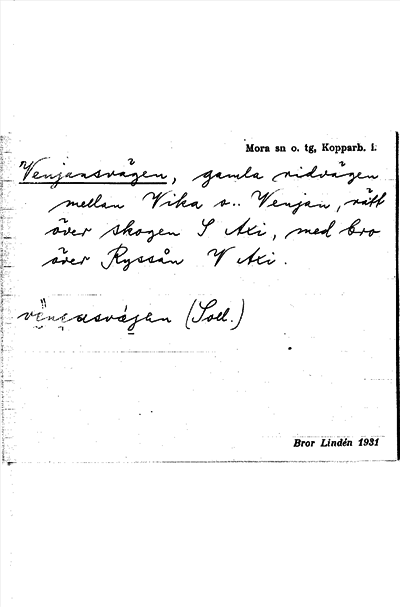 Mora sn o. tg, Kopparb. l.
Venjansvägen, gamla ridvägen
mellan Vika o. Venjan, rätt
över skogen S Axi, med bro
över Ryssån V Axi.
(Soll.)
Bror Lindén 1931